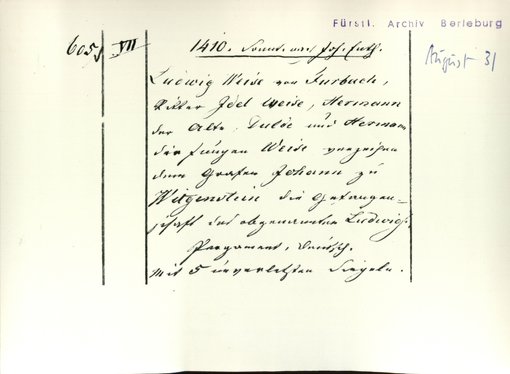 Fürstl. Archiv Berleburg
August 31
605 VII
1410. Sonnt. nach Joh. Enth.
Ludwig Weise von Furbach,
Ritter Weise, Hermann
der Alte, und Hermann
die jungen Weise verzeihen
dem Grafen Johann zu
Witgenstein die Gefangen-
schaft des obgenannten Ludwigs.
Pergament, Deutsch.
Mit 5 unverletzten Siegeln.